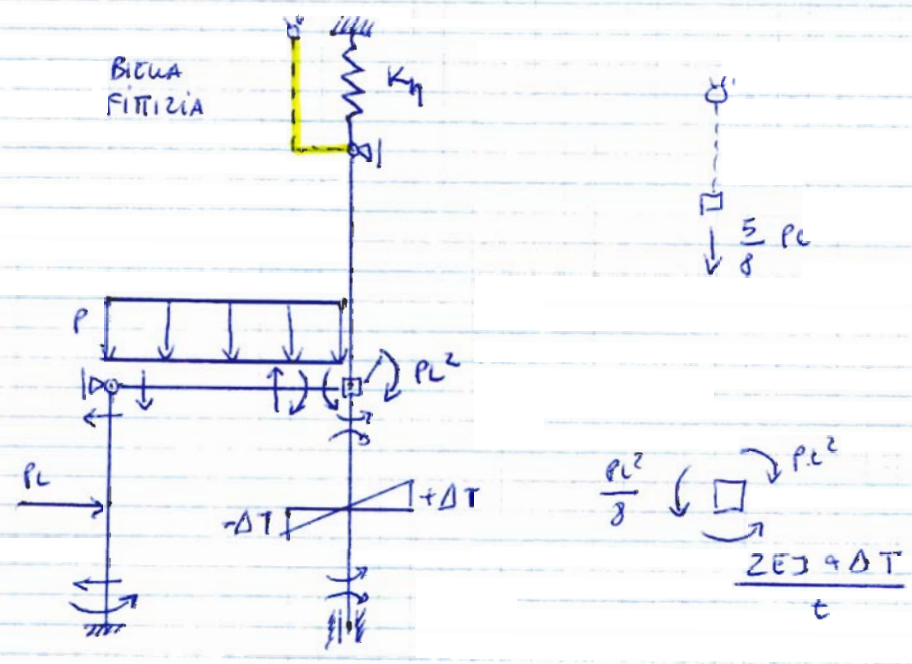 BIELLA
FITTIZIA
Kη
5/8 PL
P
PL²
PL
-ΔT
+ΔT
PL²/8
PL²
2EJαΔT/t